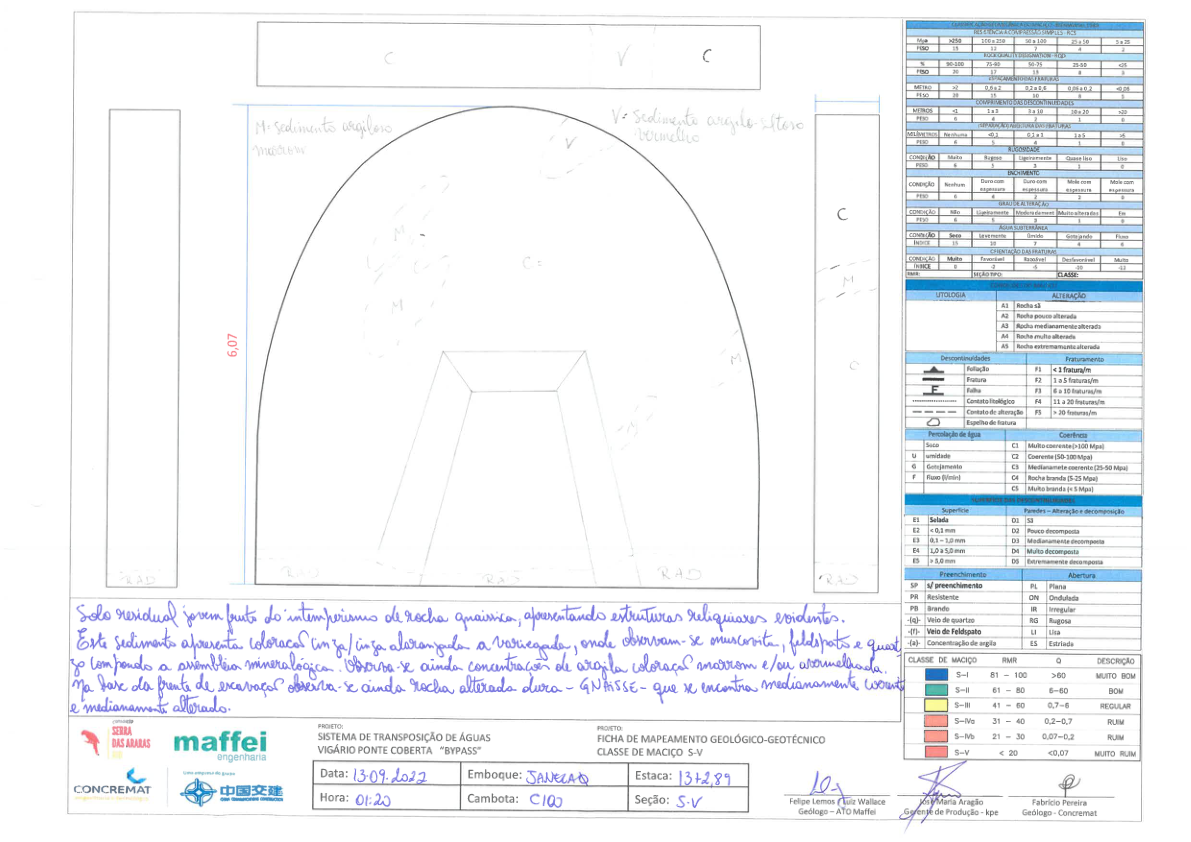 C
V
C
M= Sedimento argiloso
marrom
V= Sedimento argilo siltoso
vermelho
V
M
M
M
M
M
C=
C
C
6,07
RAD
RAD
RAD
RAD
RAD
Solo residual jovem fruto do intemperismo de rocha gnaissica, apresentando estruturas reliquiares evidentes.
Este sedimento apresenta coloração cinza/cinza alaranzada a variegada, onde observam-se muscovita, feldspato e quart
zo compondo a assembléia mineralógica. Observa-se ainda concentrações de argila coloração marrom e/ou avermelhada.
Na base da frente de escavação observa-se ainda rocha alterada dura - GNAISSE - que se encontra medianamente coerente
e medianamente alterado.
RESISTÊNCIA A COMPRESSÃO SIMPLES - RCS
Mpa >250 100 a 250 50 a 100 25 a 50 5 a 25
PESO 15 12 7 4 2
% 90-100 75-90 50-75 25-50 <25
PESO 20 17 13 8 3
ESPAÇAMENTO DAS FRATURAS
METRO >2 0,6 a 2 0,2 a 0,6 0,06 a 0,2 <0,06
PESO 20 15 10 8 5
COMPRIMENTO DAS DESCONTINUIDADES
METROS <1 1 a 3 3 a 10 10 a 20 >20
PESO 6 4 2 1 0
MILÍMETROS Nenhuma <0,1 0,1 a 1 1 a 5 >5
PESO 6 5 4 1 0
RUGOSIDADE
CONDIÇÃO Muito Rugosa Ligeiramente Quase liso Liso
PESO 6 5 3 1 0
ENCHIMENTO
CONDIÇÃO Nenhum Duro com espessura Duro com espessura Mole com espessura Mole com espessura
PESO 6 4 2 2 0
GRAU DE ALTERAÇÃO
CONDIÇÃO Não Ligeiramente Moderadament Muito alterados Em
PESO 6 5 3 1 0
ÁGUA SUBTERRÂNEA
CONDIÇÃO Seco Levemente Úmido Gotejando Fluxo
ÍNDICE 15 10 7 4 0
ORIENTAÇÃO DAS FRATURAS
CONDIÇÃO Muito Favorável Razoável Desfavorável Muito
ÍNDICE 0 -2 -5 -10 -12
RMR: SEÇÃO TIPO: CLASSE:
LITOLOGIA ALTERAÇÃO
A1 Rocha sã
A2 Rocha pouco alterada
A3 Rocha medianamente alterada
A4 Rocha muito alterada
A5 Rocha extremamente alterada
Descontinuidades Fraturamento
Foliação F1 < 1 fratura/m
Fratura F2 1 a 5 fraturas/m
F Falha F3 6 a 10 fraturas/m
Contato litológico F4 11 a 20 fraturas/m
Contato de alteração F5 > 20 fraturas/m
Espelho de fratura
Percolação de água Coerência
Seco C1 Muito coerente (>100 Mpa)
U umidade C2 Coerente (50-100 Mpa)
G Gotejamento C3 Medianamete coerente (25-50 Mpa)
F Fluxo (l/min) C4 Rocha branda (5-25 Mpa)
C5 Muito branda (< 5 Mpa)
Superfície Paredes – Alteração e decomposição
E1 Selada D1 Sã
E2 < 0,1 mm D2 Pouco decomposta
E3 0,1 – 1,0 mm D3 Medianamente decomposta
E4 1,0 a 5,0 mm D4 Muito decomposta
E5 > 5,0 mm D5 Extremamente decomposta
Preenchimento Abertura
SP s/ preenchimento PL Plana
PR Resistente ON Ondulada
PB Brando IR Irregular
-(q)- Veio de quartzo RG Rugosa
-(f)- Veio de Feldspato LI Lisa
-(a)- Concentração de argila ES Estriada
CLASSE DE MACIÇO RMR Q DESCRIÇÃO
S-I 81 – 100 >60 MUITO BOM
S-II 61 – 80 6-60 BOM
S-III 41 – 60 0,7-6 REGULAR
S-IVa 31 – 40 0,2-0,7 RUIM
S-IVb 21 – 30 0,07-0,2 RUIM
S-V < 20 <0,07 MUITO RUIM
SERRA
DAS ARARAS
maffei
engenharia
CONCREMAT
Uma empresa do grupo
中国交建
PROJETO:
SISTEMA DE TRANSPOSIÇÃO DE ÁGUAS
VIGÁRIO PONTE COBERTA "BYPASS"
PROJETO:
FICHA DE MAPEAMENTO GEOLÓGICO-GEOTÉCNICO
CLASSE DE MACIÇO S-V
Data: 13.09.2022 Emboque: JANELAO Estaca: 13+2,89
Hora: 01:20 Cambota: C100 Seção: S-V
Felipe Lemos / Luiz Wallace
Geólogo – ATO Maffei
José Maria Aragão
Gerente de Produção - kpe
Fabrício Pereira
Geólogo - Concremat